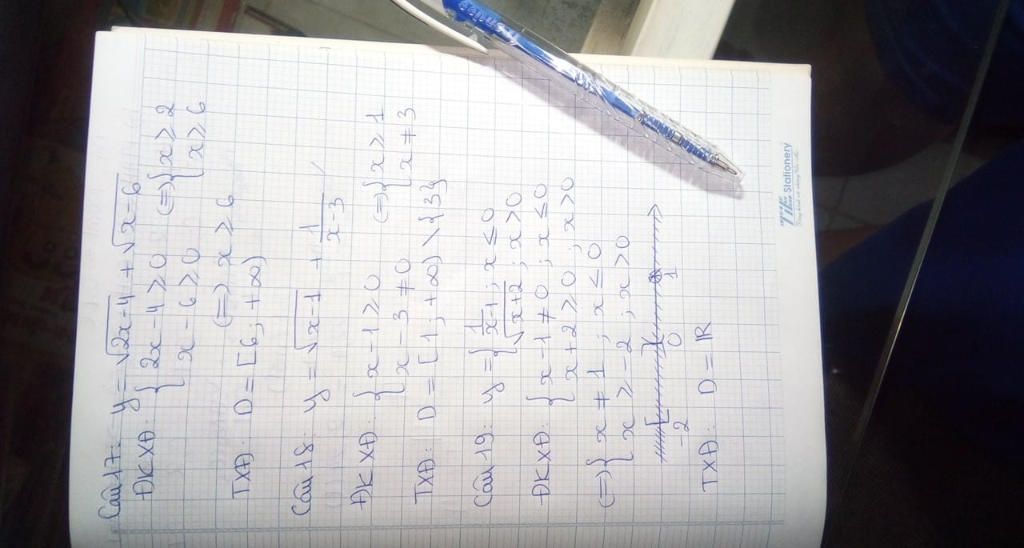 Câu 17: y = √(2x-4) + √(x-6)
ĐKXĐ: { 2x-4 ≥ 0 (=> { x ≥ 2
x-6 ≥ 0 x ≥ 6
(=> x ≥ 6
TXĐ: D = [6; +∞)
Câu 18: y = √(x-1) + 1/(x-3)
ĐKXĐ: { x-1 ≥ 0 (=> { x ≥ 1
x-3 ≠ 0 x ≠ 3
TXĐ: D = [1; +∞) \ {3}
Câu 19: y = { 1/(x-1); x ≤ 0
√(x+2); x > 0
ĐKXĐ: { x-1 ≠ 0; x ≤ 0
x+2 ≥ 0; x > 0
(=> { x ≠ 1; x ≤ 0
x ≥ -2; x > 0
-2 0 1
TXĐ: D = ℝ
Stationery